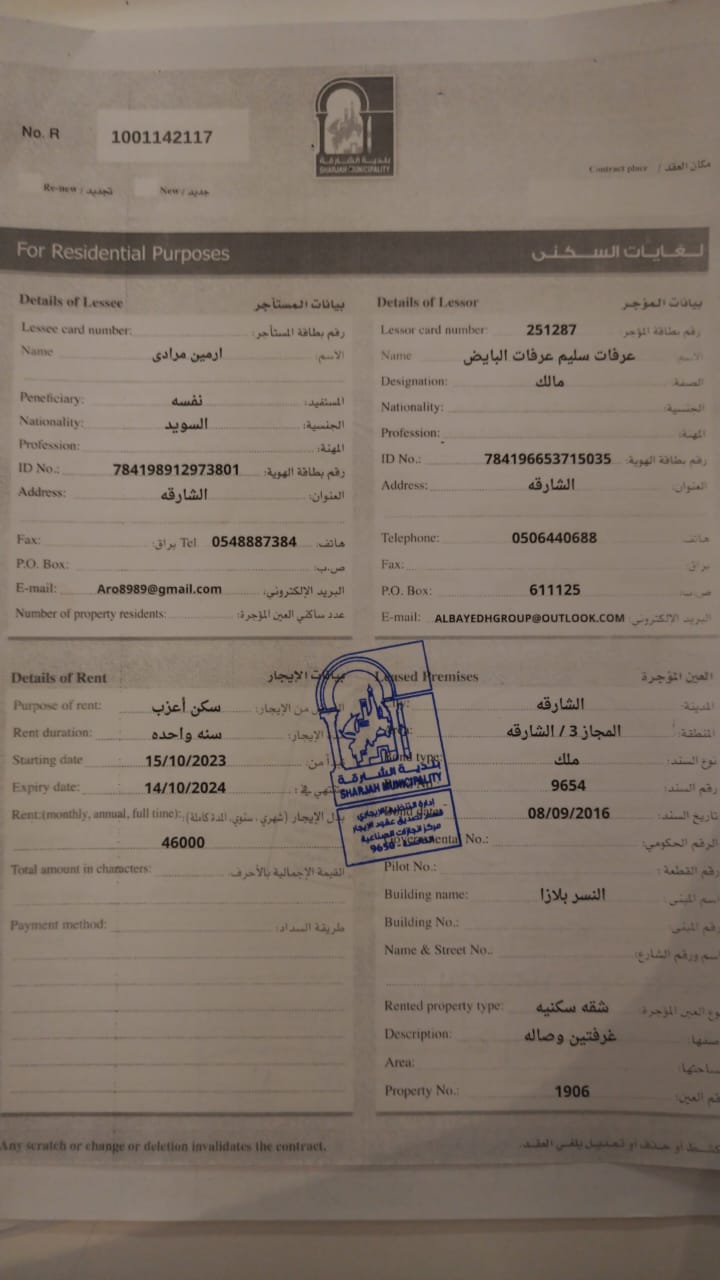 No. R 1001142117
بلدية الشارقة
SHARJAH MUNICIPALITY
Contract place / مكان العقد
Re-new / تجديد New / جديد
For Residential Purposes لغايات السكنى
Details of Lessee بيانات المستأجر
Lessee card number: رقم بطاقة المستأجر:
Name ارمين مرادى الاسم:
Peneficiary: نفسه المستفيد:
Nationality: السويد الجنسية:
Profession: المهنة:
ID No.: 784198912973801 رقم بطاقة الهوية:
Address: الشارقه العنوان:
Fax: براق: Tel 0548887384 هاتف:
P.O. Box: ص.ب:
E-mail: Aro8989@gmail.com البريد الإلكتروني:
Number of property residents: عدد ساكني العين المؤجرة:
Details of Lessor بيانات المؤجر
Lessor card number: 251287 رقم بطاقة المؤجر
Name عرفات سليم عرفات البايض الاسم
Designation: مالك الصفة
Nationality: الجنسية:
Profession: المهنة:
ID No.: 784196653715035 رقم بطاقة الهوية:
Address: الشارقه العنوان:
Telephone: 0506440688 هاتف
Fax: براق:
P.O. Box: 611125 ص.ب:
E-mail: ALBAYEDHGROUP@OUTLOOK.COM البريد الإلكتروني:
Details of Rent بيانات الإيجار
Purpose of rent: سكن أعزب من الإيجار:
Rent duration: سنه واحده الإيجار:
Starting date 15/10/2023 من:
Expiry date: 14/10/2024
Rent:(monthly, annual, full time): بدل الإيجار (شهري، سنوي، المدة كاملة):
46000
Total amount in characters: القيمة الإجمالية بالأحرف:
Payment method: طريقة السداد:
Leased Premises العين المؤجرة
الشارقه المدينة:
المجاز 3 / الشارقه المنطقة:
type: ملك نوع السند:
9654 رقم السند:
08/09/2016 تاريخ السند:
Governmental No.: الرقم الحكومي:
Pilot No.: رقم القطعة:
Building name: النسر بلازا اسم المبنى:
Building No.: رقم المبنى:
Name & Street No.. اسم ورقم الشارع:
Rented property type: شقه سكنيه نوع العين المؤجرة:
Description: غرفتين وصاله
Area:
Property No.: 1906 رقم العين:
بلدية الشارقة
SHARJAH MUNICIPALITY
إدارة التنظيم الإيجاري
قسم تصديق عقود الإيجار
9650
Any scratch or change or deletion invalidates the contract. كشط أو حذف أو تعديل يلغي العقد.